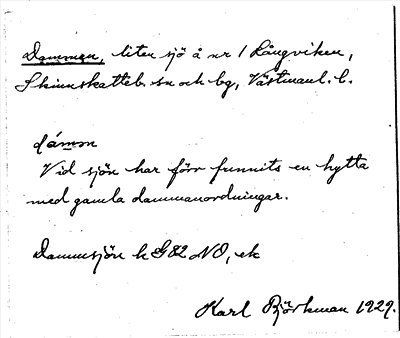 Dammen, liten sjö å nr 1 Långviken,
Skinnskatteb. sn och bg, Västmanl. l.
dámm
Vid sjön har förr funnits en hytta
med gamla dammanordningar.
Dammsjön k G82 NO, ek
Karl Björkman 1929.